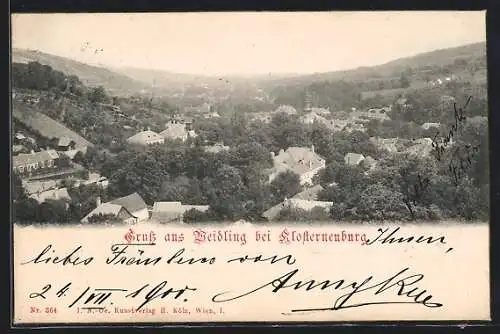 Gruß aus Weidling bei Klosterneuburg. Ihnen,
liebes Fräulein von
24/VII 1900. Anny
Nr. 364 I. N.-Oe. Kunstverlag H. Kölz, Wien, I.